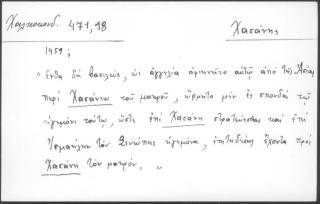 Χαλκοκονδ. 471,18
Χασάνης
1459;
"ἔνθα δὴ βασιλεύς, ὡς ἀγγελία ἀφικνεῖτο αὐτῷ ἀπὸ τῆς Ἀσίας
περὶ Χασάνεω τοῦ μακροῦ, ὥρμητο μὲν ἐς σπονδὰς τῷ
ἡγεμόνι τούτῳ, ὥστε ἐπὶ Χασάνη στρατεύεσθαι καὶ ἐπὶ
Ἰσμαήλην τὸν Σινώπης ἡγεμόνα, ἐπιτηδείως ἔχοντα πρὸς
Χασάνη τὸν μακρόν, "